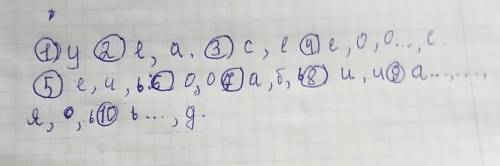 ① у ② е, а. ③ с, е ④ е, о, о..., е.
⑤ е, и, ь. ⑥ о, о ⑦ а, б, ь ⑧ и, и ⑨ а..., ...,
я, о, ь ⑩ ь..., д.